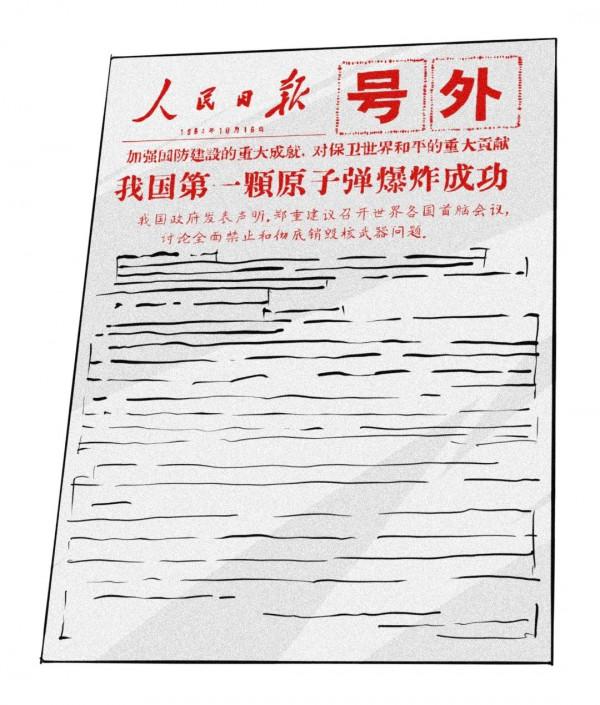 人民日报 号外
1964年10月16日
加强国防建設的重大成就，对保卫世界和平的重大貢献
我国第一顆原子弹爆炸成功
我国政府发表声明，郑重建议召开世界各国首脑会议，
讨论全面禁止和彻底销毁核武器问题。